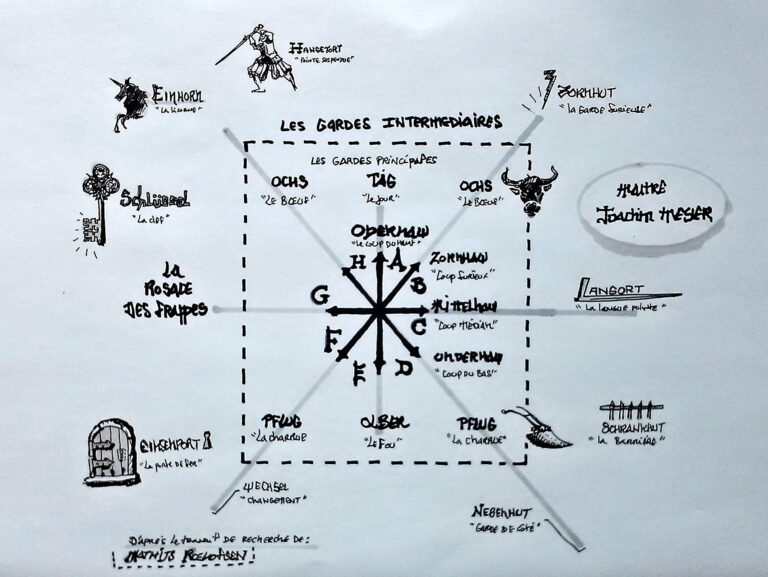 Hangetort
"Pointe suspendue"
Einhorn
"La licorne"
Zornhut
"La garde furieuse"
Les Gardes Intermediaires
Les Gardes Principales
Ochs
"Le Bœuf"
Tag
"Le Jour"
Ochs
"Le Bœuf"
Schlüssel
"La clef"
Maitre
Joachim Meyer
Oberhaw
"Le coup du haut"
H
A
Zornhaw
"Coup furieux"
B
La
Rosace
Des Frappes
G
Mittelhaw
"Coup médian"
C
Langort
"La longue pointe"
F
E
D
Underhaw
"Coup du bas"
Pflug
"La charrue"
Olber
"Le Fou"
Pflug
"La charrue"
Eisenport
"La porte de fer"
Schrankhut
"La Barrière"
Wechsel
"Changement"
Nebenhut
"Garde de côté"
D'après le travail de recherche de: